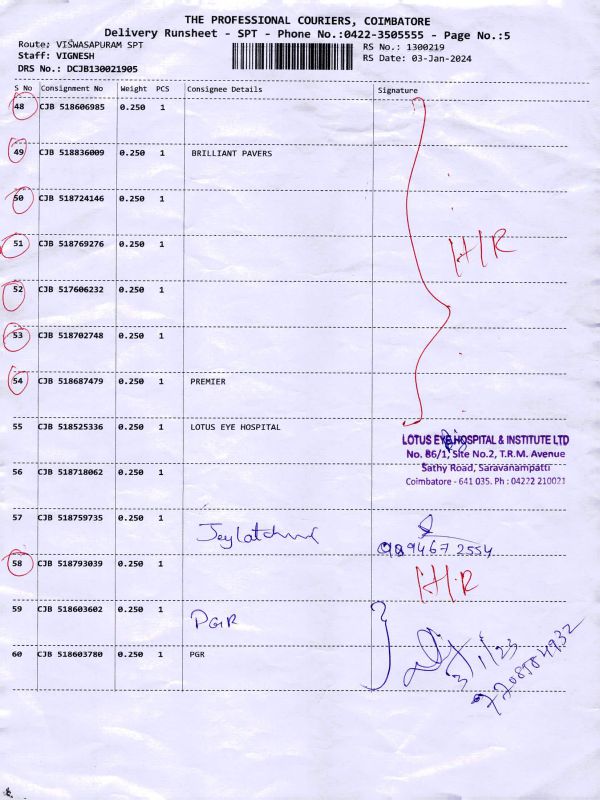 THE PROFESSIONAL COURIERS, COIMBATORE
Delivery Runsheet - SPT - Phone No.:0422-3505555 - Page No.:5
Route: VISWASAPURAM SPT
Staff: VIGNESH
DRS No.: DCJB130021905
RS No.: 1300219
RS Date: 03-Jan-2024
S No Consignment No Weight PCS Consignee Details Signature
48 CJB 518606985 0.250 1
49 CJB 518836009 0.250 1 BRILLIANT PAVERS
50 CJB 518724146 0.250 1
51 CJB 518769276 0.250 1 H/R
52 CJB 517606232 0.250 1
53 CJB 518702748 0.250 1
54 CJB 518687479 0.250 1 PREMIER
55 CJB 518525336 0.250 1 LOTUS EYE HOSPITAL
LOTUS EYE HOSPITAL & INSTITUTE LTD
No. 86/1, Site No.2, T.R.M. Avenue
Sathy Road, Saravanampatti
Coimbatore - 641 035. Ph : 04222 210021
56 CJB 518718062 0.250 1
57 CJB 518759735 0.250 1
9894672554
58 CJB 518793039 0.250 1 H/R
59 CJB 518603602 0.250 1 PGR
60 CJB 518603780 0.250 1 PGR
3/1/23
7708584932